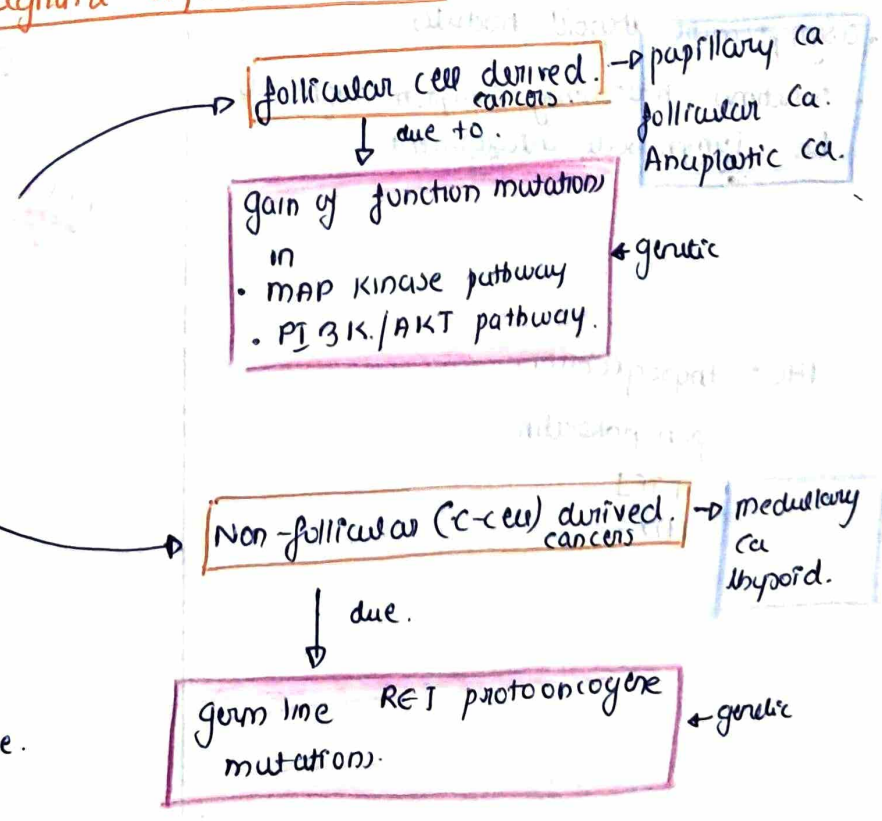 follicular cell derived.
cancers.
→ papillary ca
follicular Ca.
Anaplastic Ca.
due to.
gain of function mutations
in
• MAP Kinase pathway
• PI3K./AKT pathway.
← genetic
Non-follicular (C-cell) derived.
cancers
→ medullary
ca
thyroid.
due.
germ line RET protooncogene
mutations.
← genetic
e.